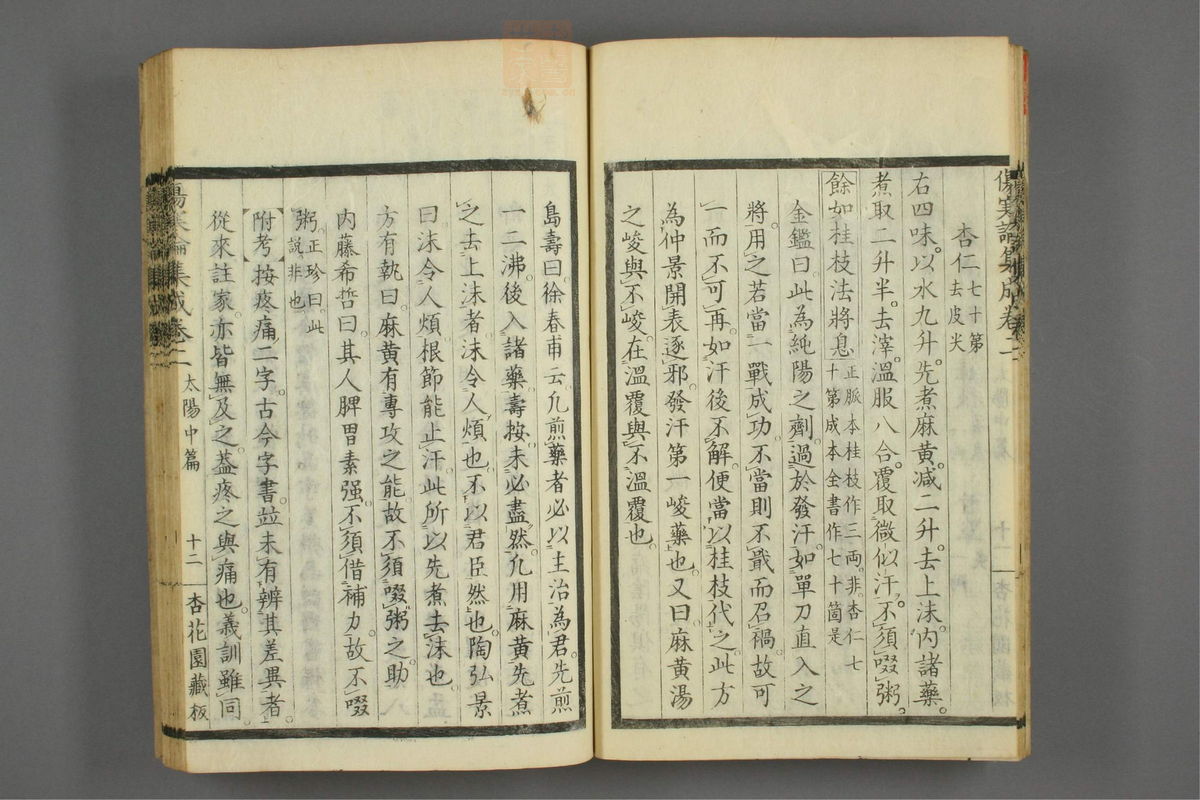 傷寒論集成卷二
杏仁七十第
去皮尖
右四味。以水九升。先煮麻黃。減二升。去上沫。內諸藥。
煮取二升半。去滓。溫服八合。覆取微似汗。不須啜粥。
餘如桂枝法將息 正脈本桂枝作三兩。非。杏仁七
十第成本全書作七十箇是
金鑑曰。此為純陽之劑。過於發汗。如單刀直入之
將。用之若當。一戰成功。不當則不戢而召禍。故可
一而不可再。如汗後不解。便當以桂枝代之。此方
為仲景開表逐邪。發汗第一峻藥也。又曰。麻黃湯
之峻與不峻。在溫覆與不溫覆也。
島壽曰。徐春甫云。凡煎藥者必以主治為君。先煎
一二沸。後入諸藥。壽按。未必盡然。凡用麻黃。先煮
之去上沫者。沫令人煩也。不以君臣然也。陶弘景
曰。沫令人煩。根節能止汗。此所以先煮去沫也。
方有執曰。麻黃有專攻之能。故不須啜粥之助
內藤希哲曰。其人脾胃素强。不須借補力。故不啜
粥。正珍曰。此
說非也
附考 按疼痛二字。古今字書。竝未有辨其差異者。
從來註家。亦皆無及之。葢疼之與痛也。義訓雖同
傷寒論集成卷二 太陽中篇 十二 杏花園藏板